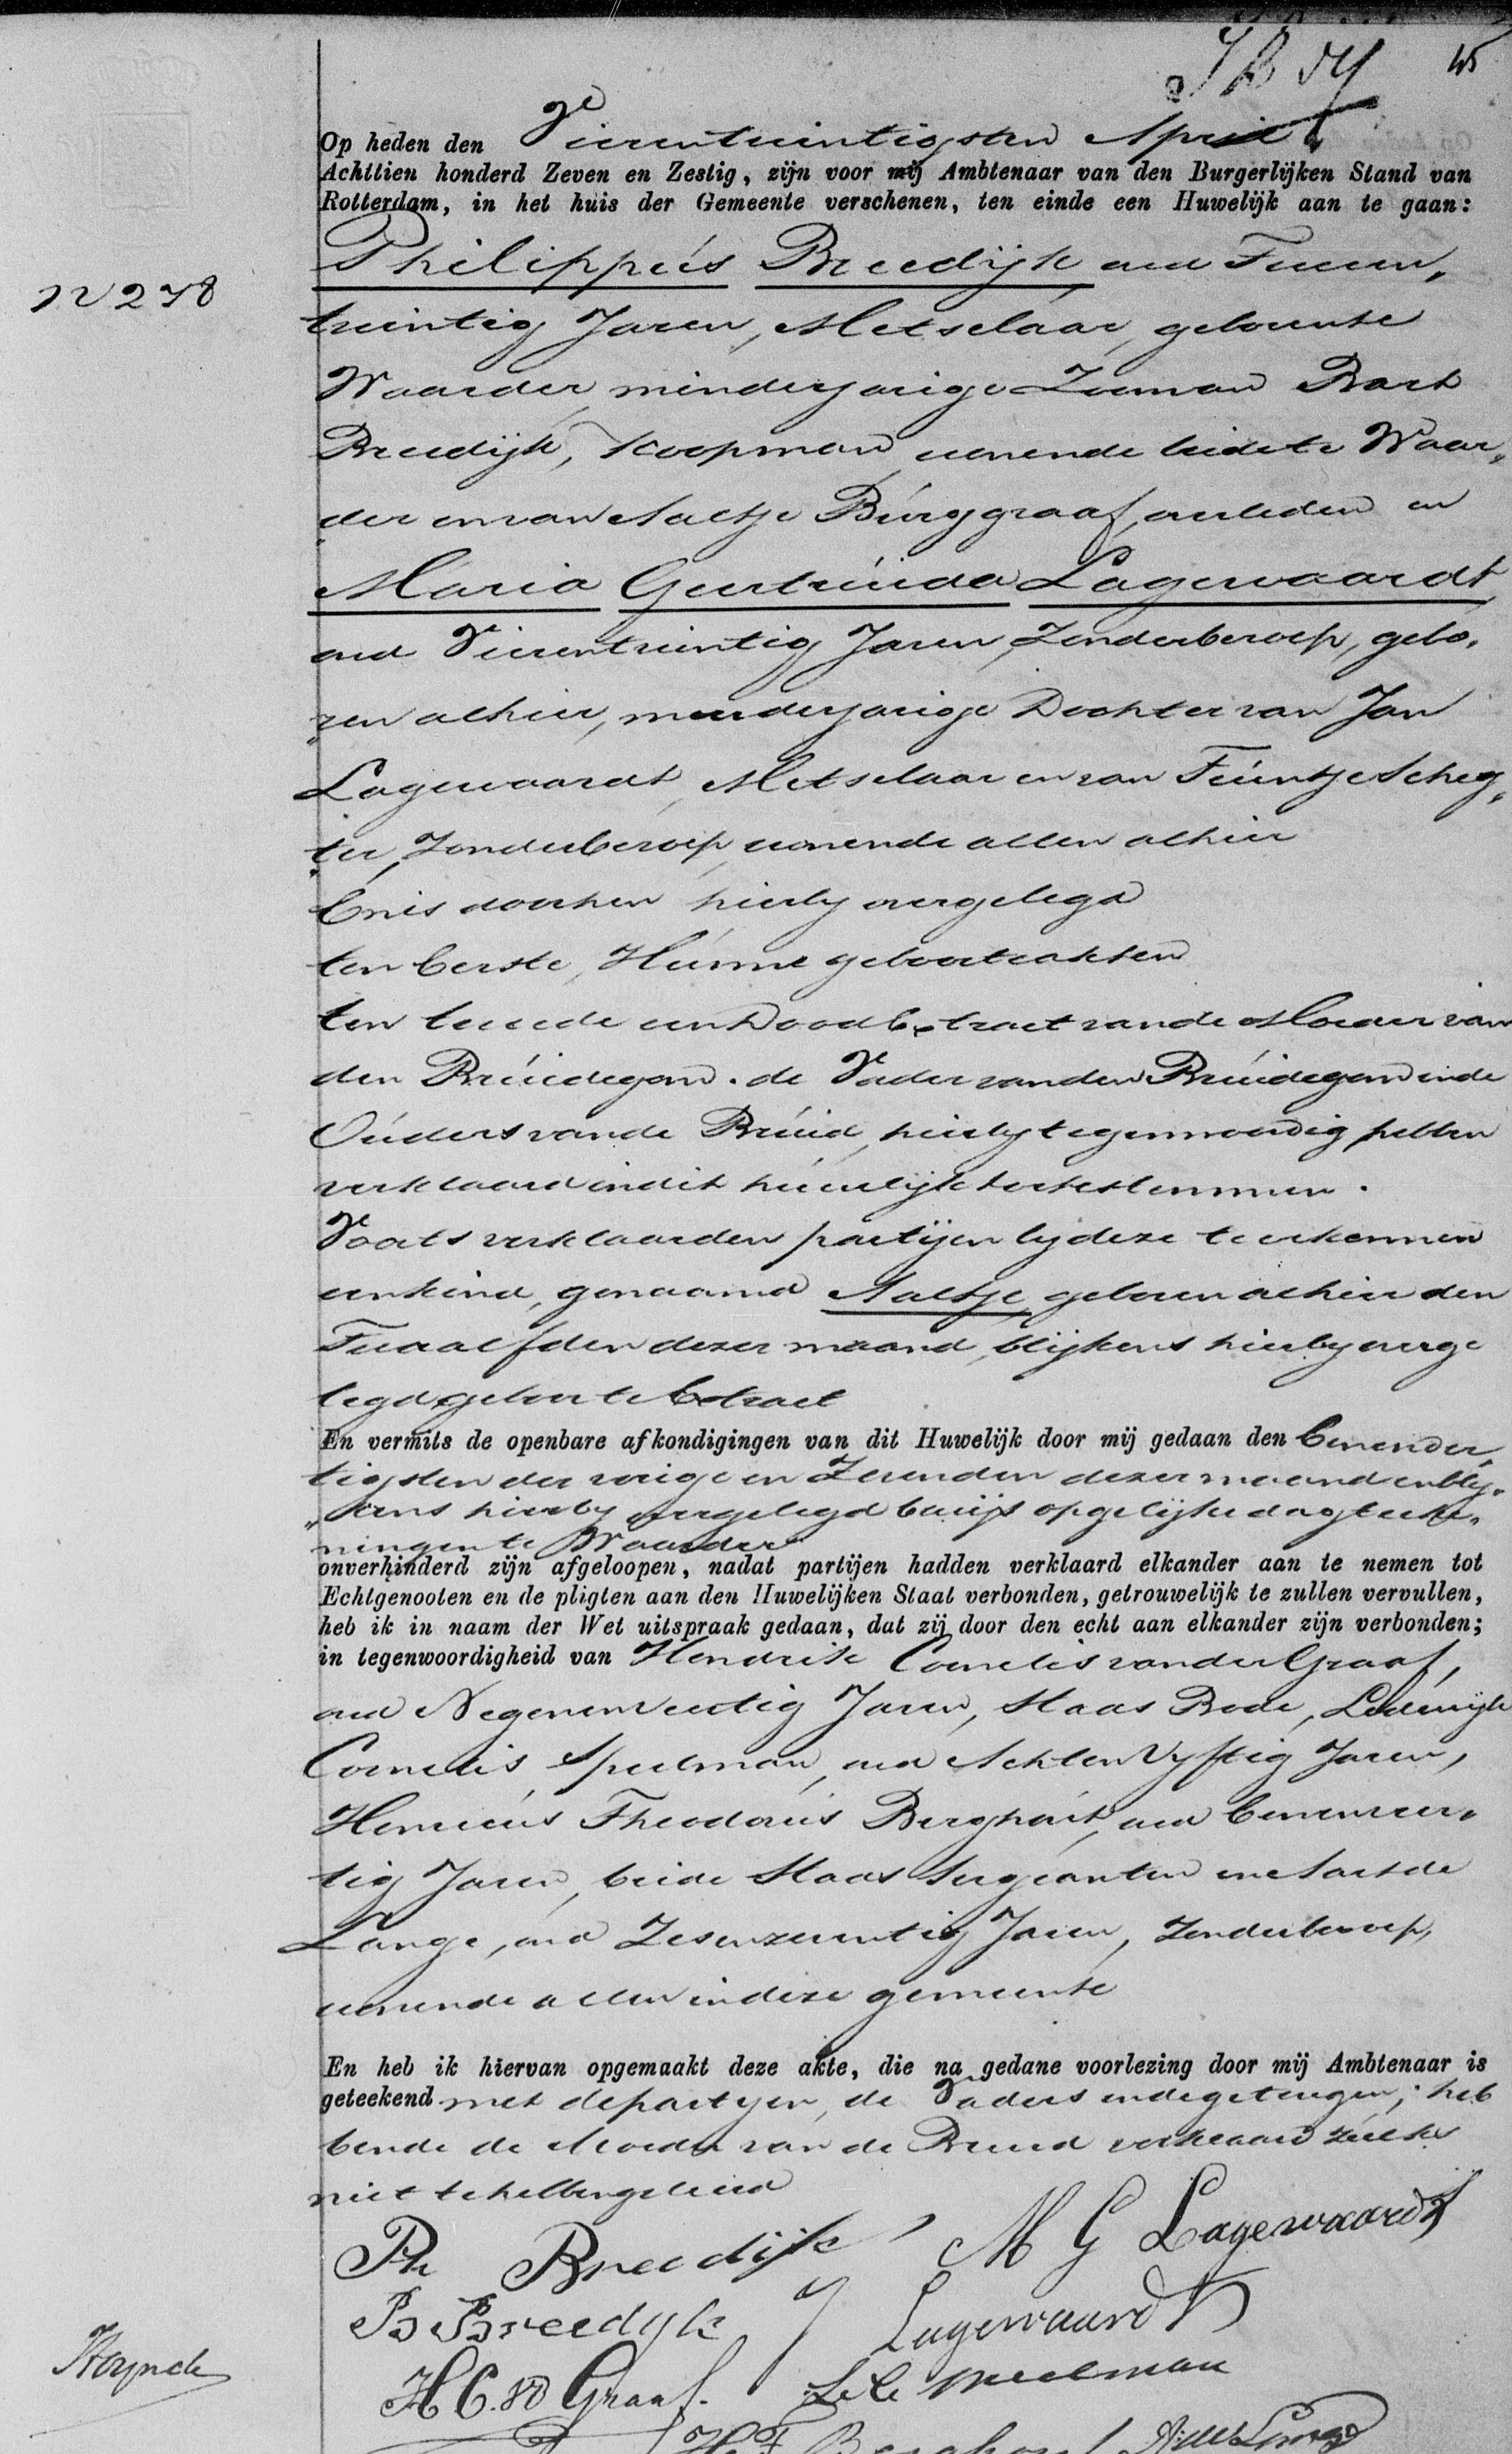 45
Op heden den Vierentwintigsten April
Achttien honderd Zeven en Zestig, zijn voor mij Ambtenaar van den Burgerlijken Stand van
Rotterdam, in het huis der Gemeente verschenen, ten einde een Huwelijk aan te gaan:
N 278
Philippús Breedijk oud Tween„
twintig Jaren, Metselaar, geborente
Waarder, minderjarige Zoon van Bart
Breedijk, Koopman wonende beide te Waar„
„der en van Aaltje Búrggraaf, overleden en
Maria Geertrúida Lagewaardt
oud Vierentwintig Jaren, Zonderberoep, gebo„
„ren alhier, meerderjarige Dochter van Jan
Lagewaardt, Metselaar en van Teúntje Scheg„
„ter, Zonderberoep, wonende allen alhier
En is door hen hierby overgelegd
ten Eerste, Húnne geboorteakten
ten tweede een Dood Extract van de Moeder van
den Brúidegom. de Vader van den Brúidegom en de
Oúders van de Brúid, hierby tegenwoordig hebben
verklaard in dit húwelijk toetestemmen.
Voorts verklaarden partijen by deze te erkennen
een kind, genaamd Aaltje, geboren alhier den
Twaalfden dezer maand, blijkens hierby overge
legd geboorte Extract
En vermits de openbare afkondigingen van dit Huwelijk door mij gedaan den Eenender„
tigsten der vorige en Zevenden dezer maand en bly„
„kens hierby overgelegd bewijs op gelijke dagteeke„
ningen te Waarder
onverhinderd zijn afgeloopen, nadat partijen hadden verklaard elkander aan te nemen tot
Echtgenooten en de pligten aan den Huwelijken Staat verbonden, getrouwelijk te zullen vervullen,
heb ik in naam der Wet uitspraak gedaan, dat zij door den echt aan elkander zijn verbonden;
in tegenwoordigheid van Hendrik Cornelis van der Graaf,
oud Negenenveertig Jaren, Stads Bode, Lodewijk
Cornelis Speelman, oud Achten Vyftig Jaren,
Henricús Theodorús Berghoút, oud Eenenveer„
tig Jaren, beide Stads Sergeanten en Aart de
Lange, oud Zesenzeventig Jaren, Zonderberoep,
wonende allen in deze gemeente
En heb ik hiervan opgemaakt deze akte, die na gedane voorlezing door mij Ambtenaar is
geteekend met de partyen, de Vaders en de getuigen; heb
bende de Moeder van de Bruid verklaard zúlks
niet te hebben geleerd
Ph Breedijk M G Lagewaardt
B Breedyk J Lagewaardt
H C. vd Graaf. L. C. Speelman
H. T. Berghout A. de Lange